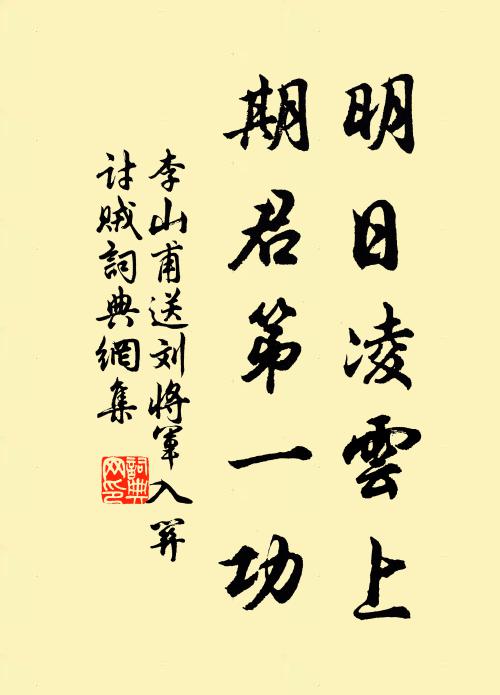 明日凌雲上
期君第一功
李山甫送刘將軍入关
討賊詞典網集
詞典
网印